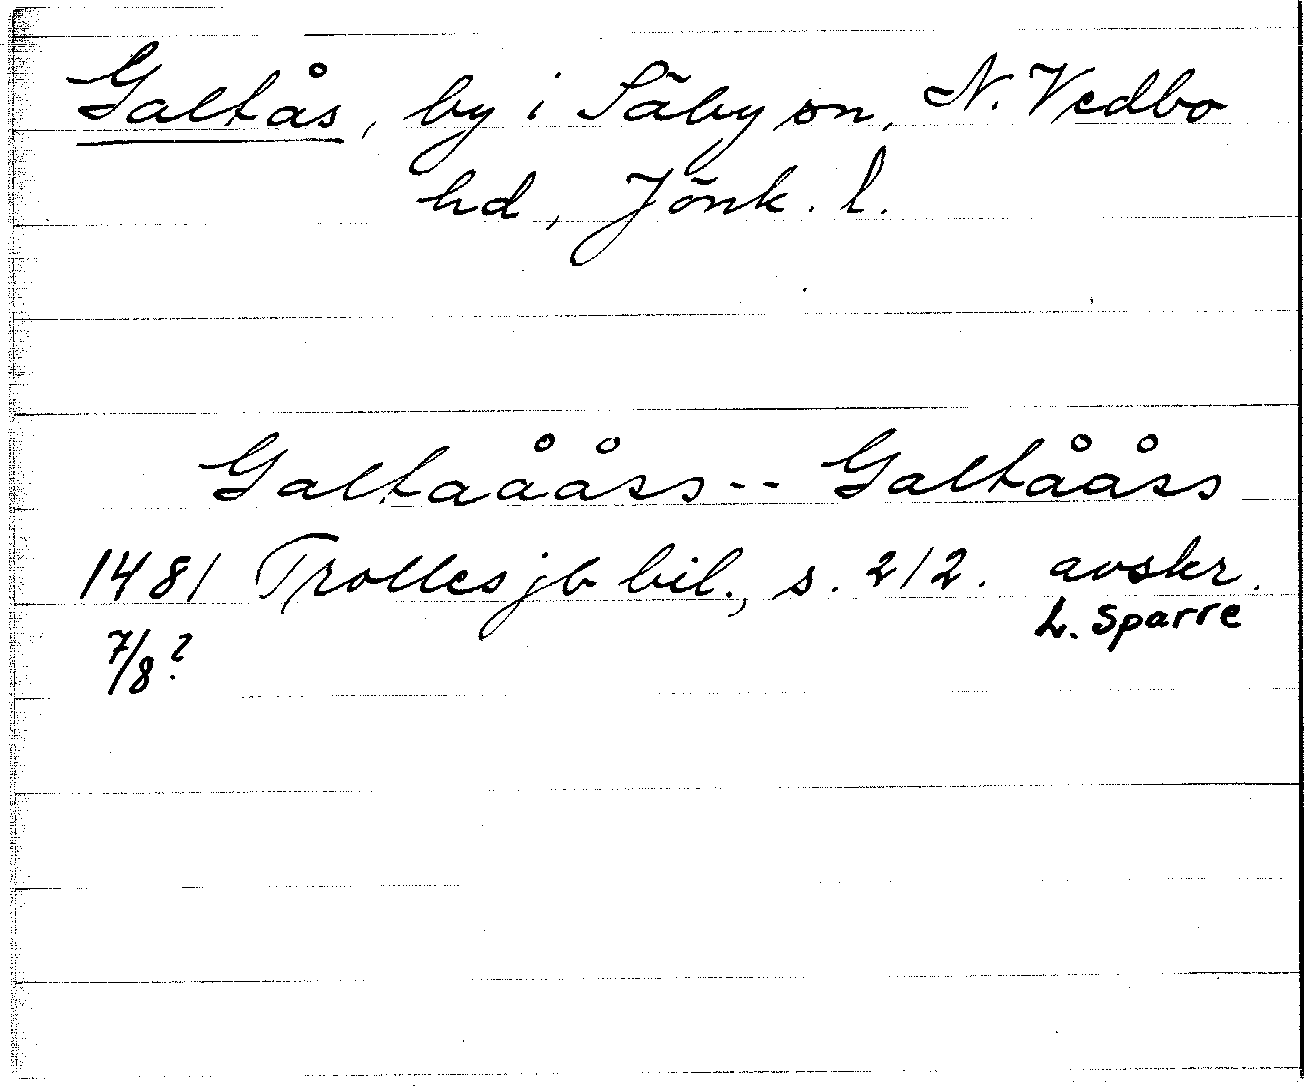 Galtås, by i Säby sn, N. Vedbo
hd, Jönk. l.
Galtaååss -- Galtååss
1481 Trolles jb bil., s. 212. avskr.
L. Sparre
7/8?